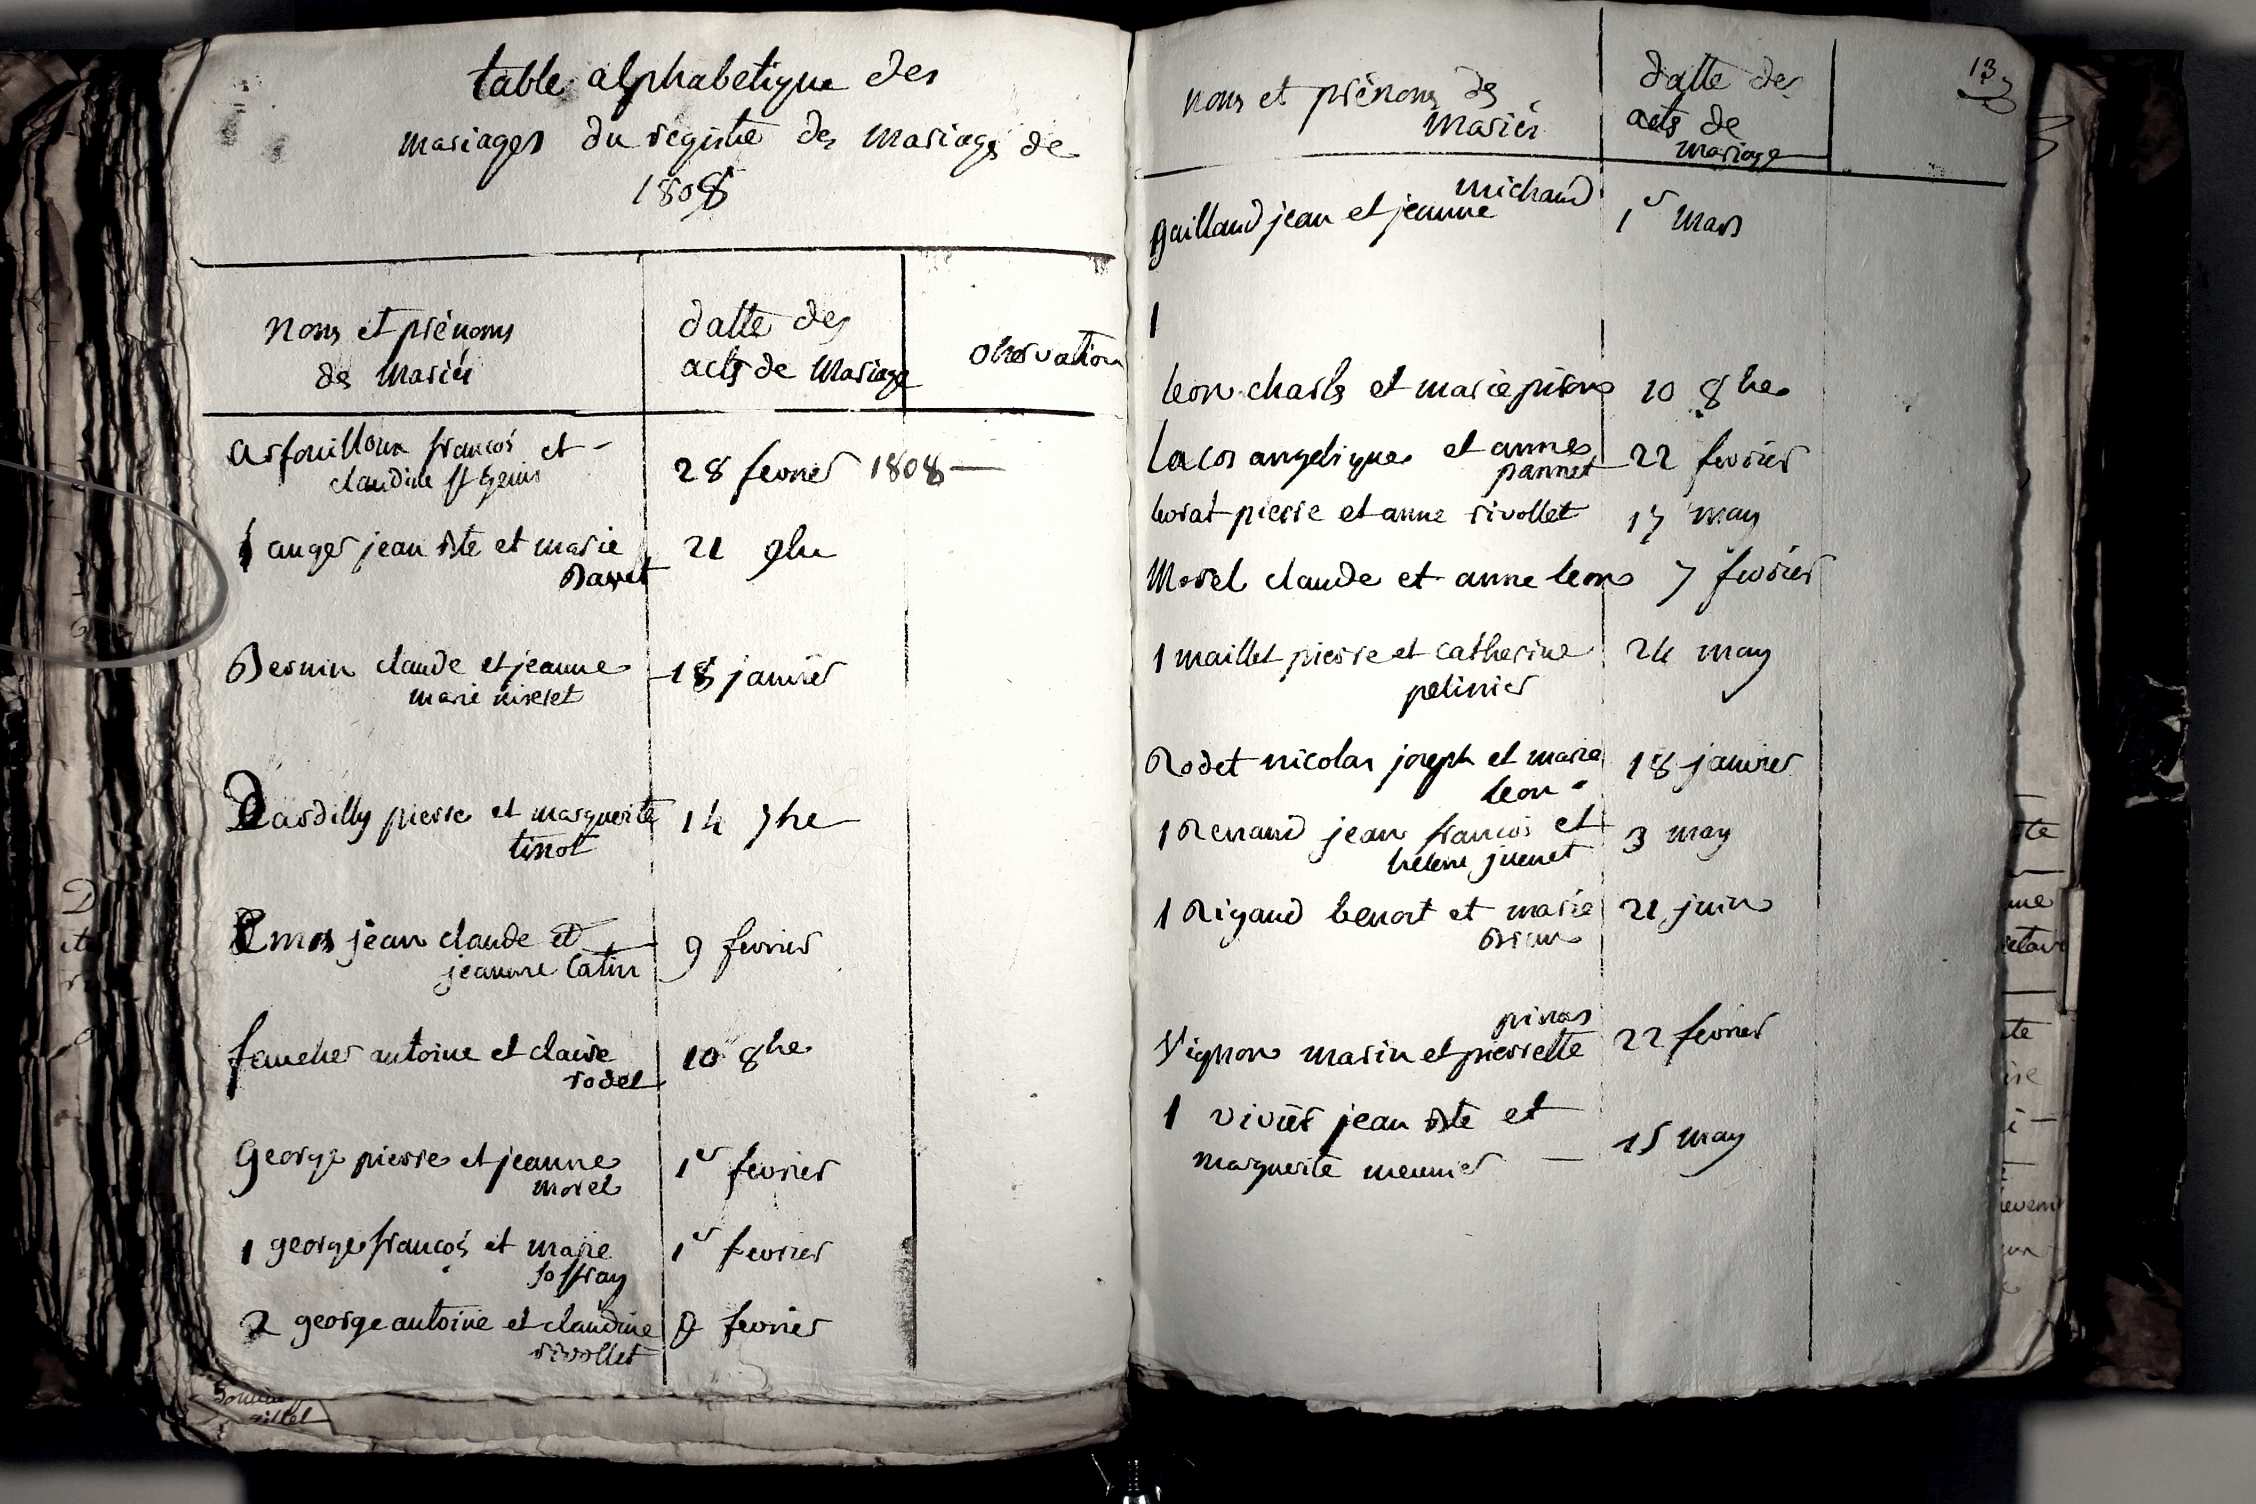 table alphabetique des
mariages du registre des mariages de
1808
noms et prénoms
des mariés
datte des
acts de mariage
observation
arfouilloux francois et
claudine st genis
28 fevrier 1808
1 auger jean bte et marie
Bavet
21 9bre
Bernin claude et jeanne
marie niseret
18 janvier
Dardilly pierre et marguerite
tissot
14 7bre
Emos jean claude et
jeanne Catin
9 fevrier
faucher antoine et claire
rodet
10 8bre
George pierre et jeanne
morel
1er fevrier
1 george francois et marie
joffray
1er fevrier
2 george antoine et claudine
rivollet
9 fevrier
13
noms et prénoms des
mariés
datte des
acts de
mariage
michaud
gaillaud jean et jeanne
1er mars
1
leon charls et marie pison
10 8bre
Lacos angelique et anne
pannet
22 fevrier
lorat pierre et anne rivollet
17 may
Morel claude et anne leon
7 fevrier
1 maillet pierre et catherine
pelinier
24 may
Rodet nicolas joseph et marie
leon
18 janvier
1 Renaud jean francois et
helene juenet
3 may
1 Rigaud benoit et marie
Brun
21 juin
pinas
Vignon marin et pierrette
22 fevrier
1 vivier jean bte et
marguerite meunier
15 may